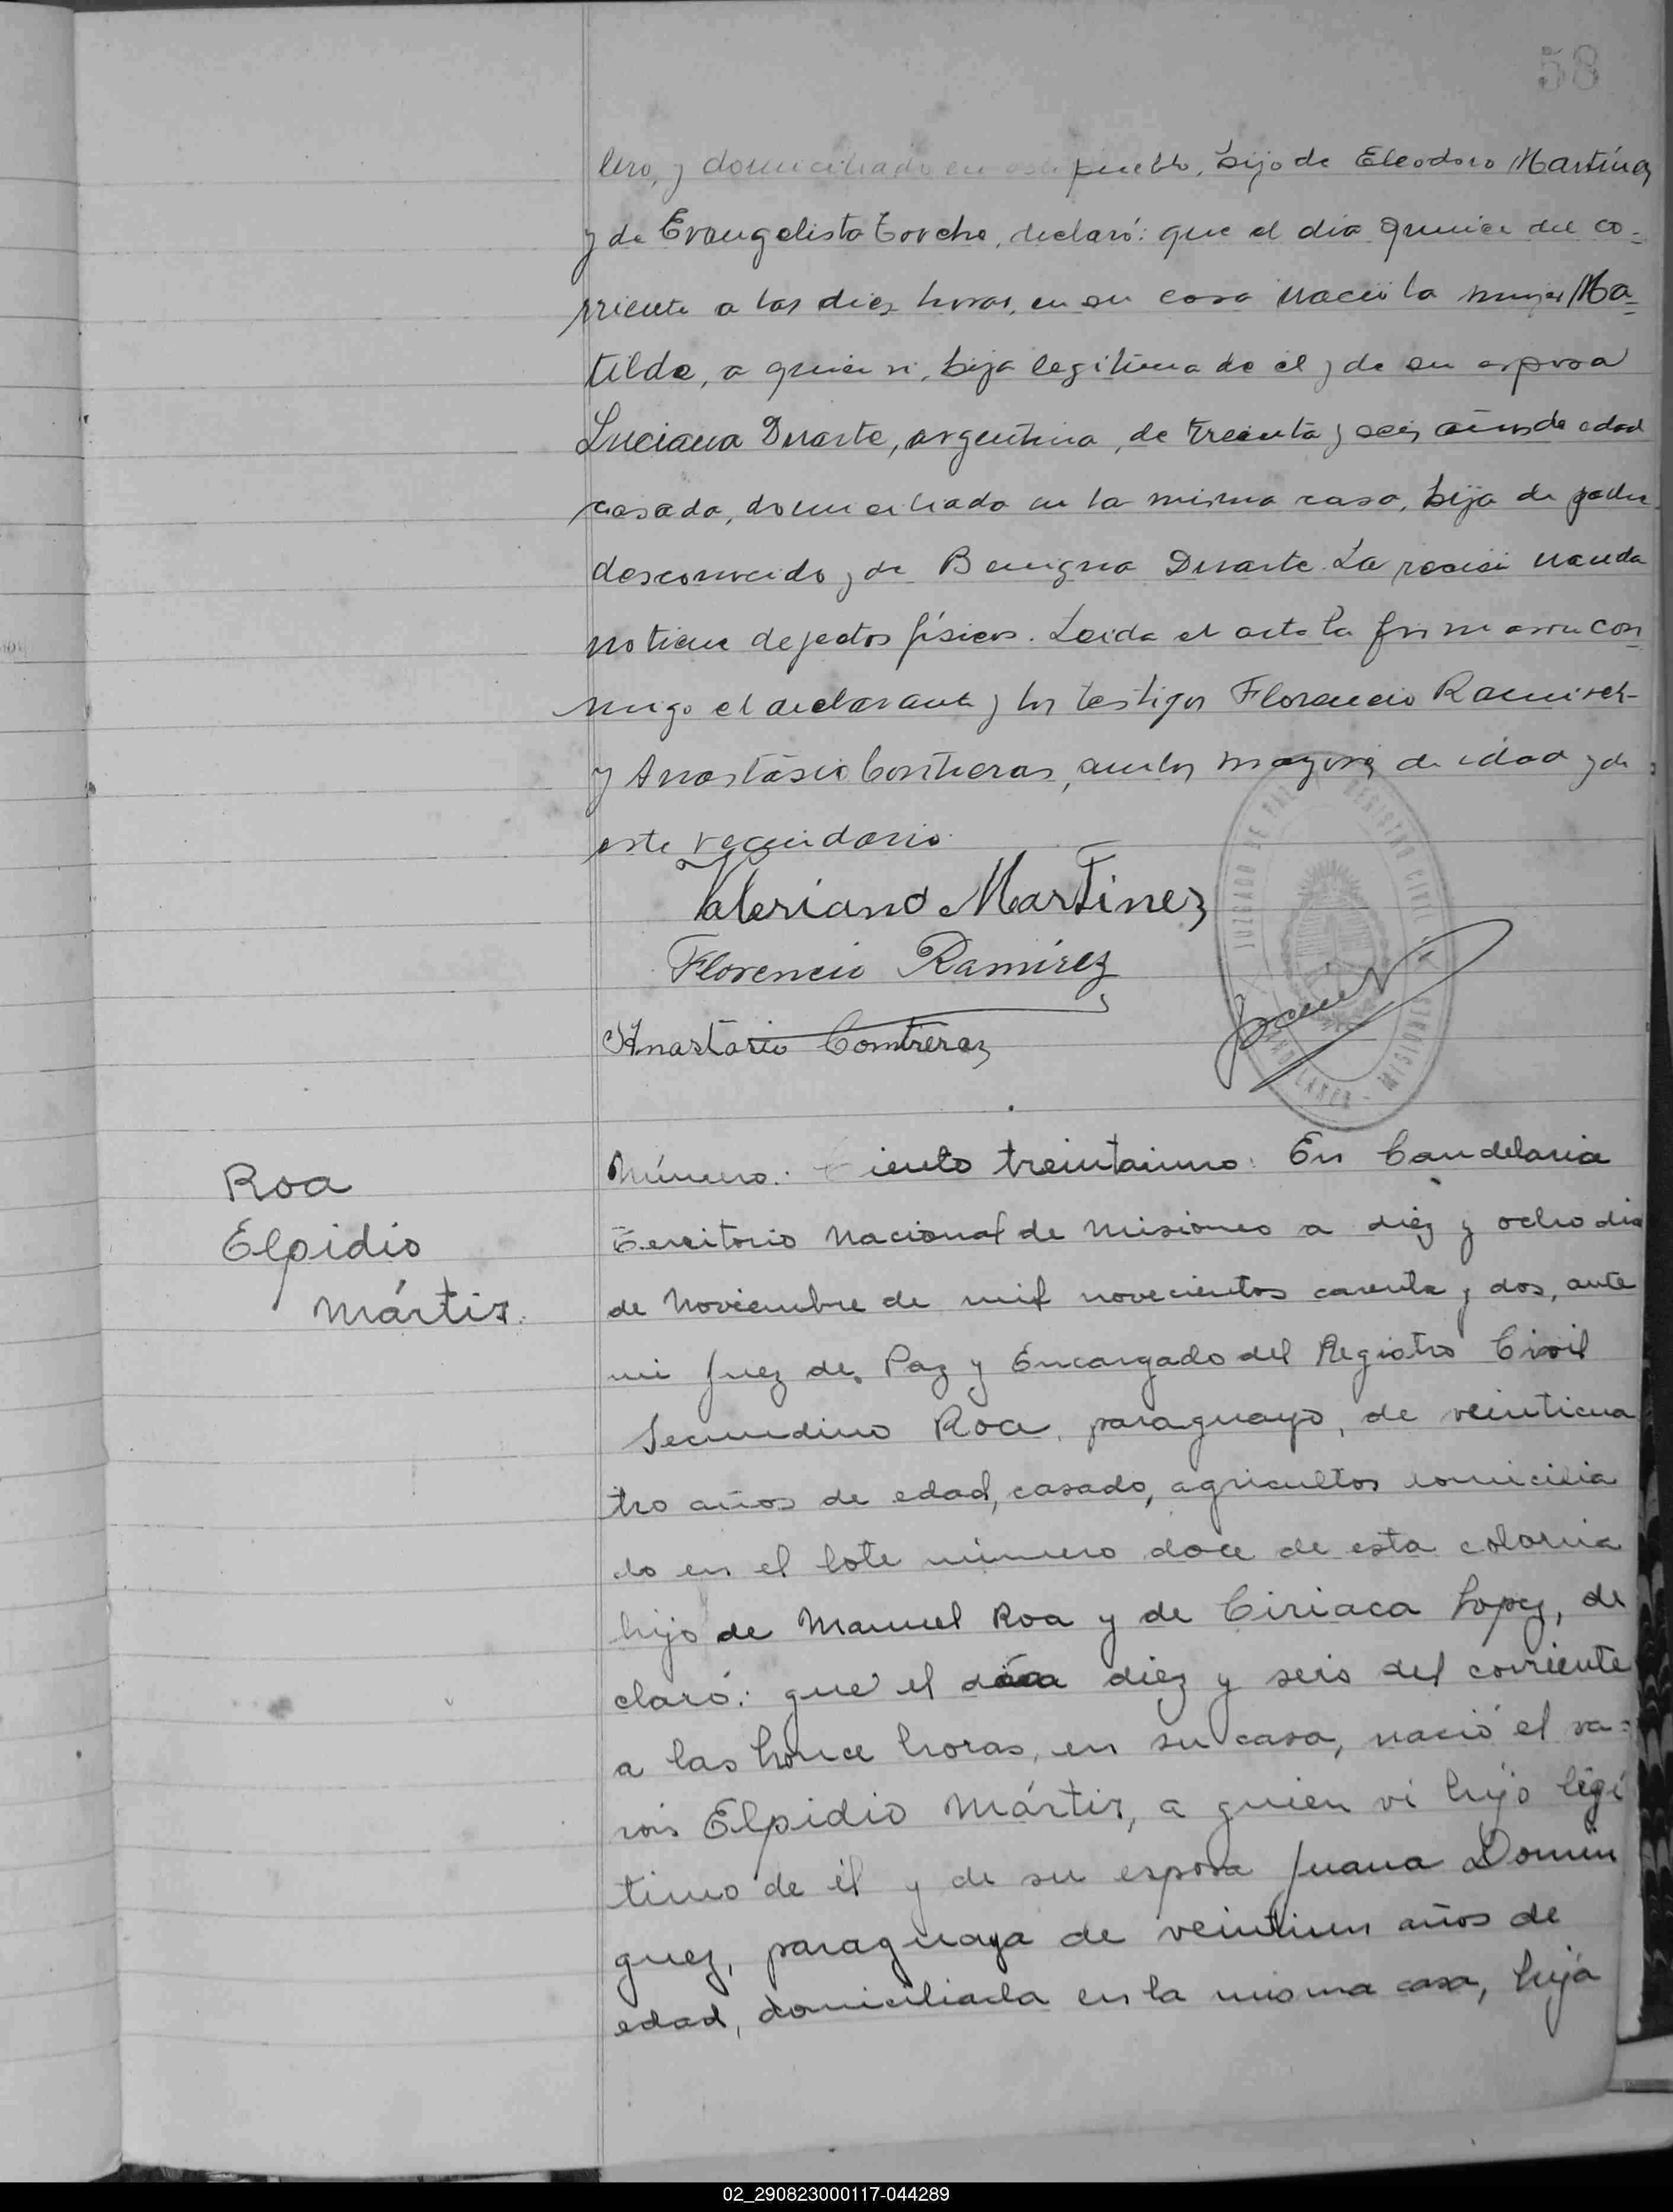 58
lero, y domiciliado en este pueblo, hijo de Eleodoro Martínez
y de Evangelista Torche, declaró: que el dia quince del co-
rriente a las diez horas, en su casa nació la mujer Ma-
tilde, a quien vi, hija legitima de el y de su esposa
Luciana Duarte, argentina, de treinta y seis años de edad
casada, domiciliada en la misma casa, hija de padre
desconocido y de Benigna Duarte. La recien nacida
no tiene defectos físicos. Leida el acta la firmaron con
migo el declarante y los testigos Florencio Ramirez
y Anastásio Contreras, ambos mayores de edad y de
este vecindario.
Valeriano Martinez
Florencio Ramírez
Anastacio Contreraz
JUZGADO DE PAZ Y REGISTRO CIVIL
CANDELARIA - MISIONES
Roa
Elpidio
Mártir.
Número: Ciento treintaiuno: En Candelaria
Territorio Nacional de Misiones a diez y ocho dia
de Noviembre de mil novecientos carenta y dos, ante
mi Juez de Paz y Encargado del Registro Civil
Secundino Roa, paraguayo, de veinticua
tro años de edad, casado, agricultor domicilia
do en el lote número doce de esta colonia
hijo de Manuel Roa y de Ciriaca Lopez, de
claró: que el día diez y seis del corriente
a las honce horas, en su casa, nació el va-
rón Elpidio Mártir, a quien vi hijo legí
timo de él y de su esposa Juana Domin
guez, paraguaya de veintiun años de
edad, domiciliada en la misma casa, hija
02_290823000117-044289